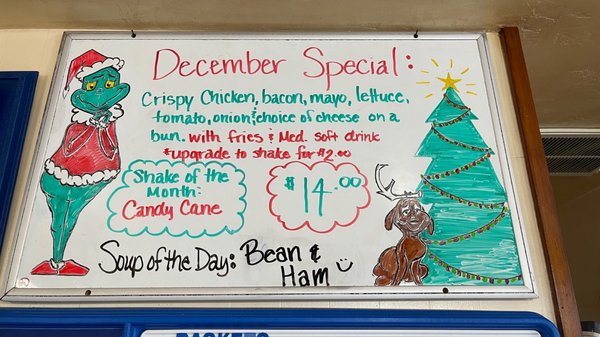 December Special:
Crispy Chicken, bacon, mayo, lettuce,
tomato, onion & choice of cheese on a
bun. with fries & Med. soft drink
*upgrade to shake for $2.00
Shake of the
Month:
Candy Cane
$14.00
Soup of the Day: Bean &
Ham
BASKETS